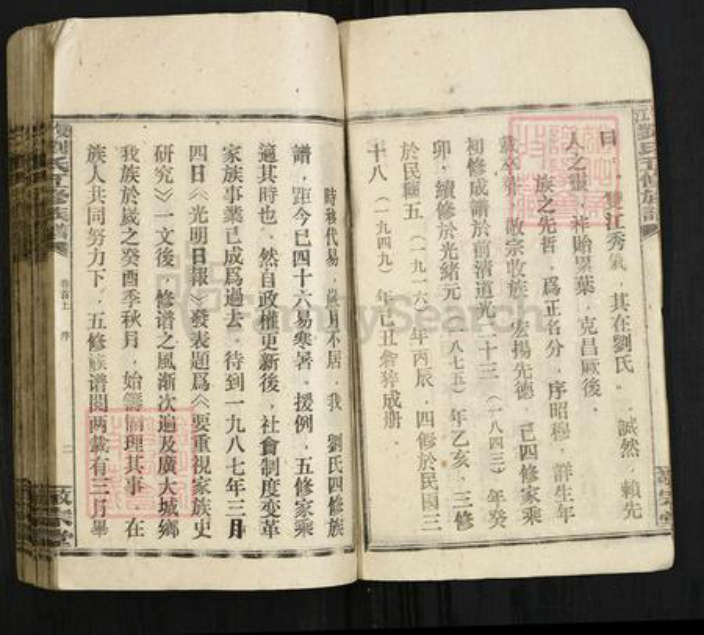 曰，雙江秀氣，其在劉氏。誠然，賴先
人之靈，祥貽累葉，克昌厥後。
族之先哲，爲正名分，序昭穆，詳生年
敬宗收族，宏揚先德，已四修家乘
初修成譜於前清道光二十三（一八四三）年癸
卯，續修於光緒元（一八七五）年乙亥，三修
於民國五（一九一六）年丙辰，四修於民國三
十八（一九四九）年己丑
成册。
時移代易，歲月不居，我 劉氏四修族
譜，距今已四十六易寒暑。援例，五修家乘
適其時也。然自政權更新後，社會制度变革
家族事業已成爲過去。待到一九八七年三月
四日《光明日報》發表題爲《要重視家族史
研究》一文後，修谱之風漸次遍及廣大城鄉
我族於歲之癸酉季秋月，始籌備理其事。在
族人共同努力下，五修族谱閱两載有三月畢
劉氏五修族譜
卷首上 序
二
敦宗堂
江劉氏五修族譜
FamilySearch